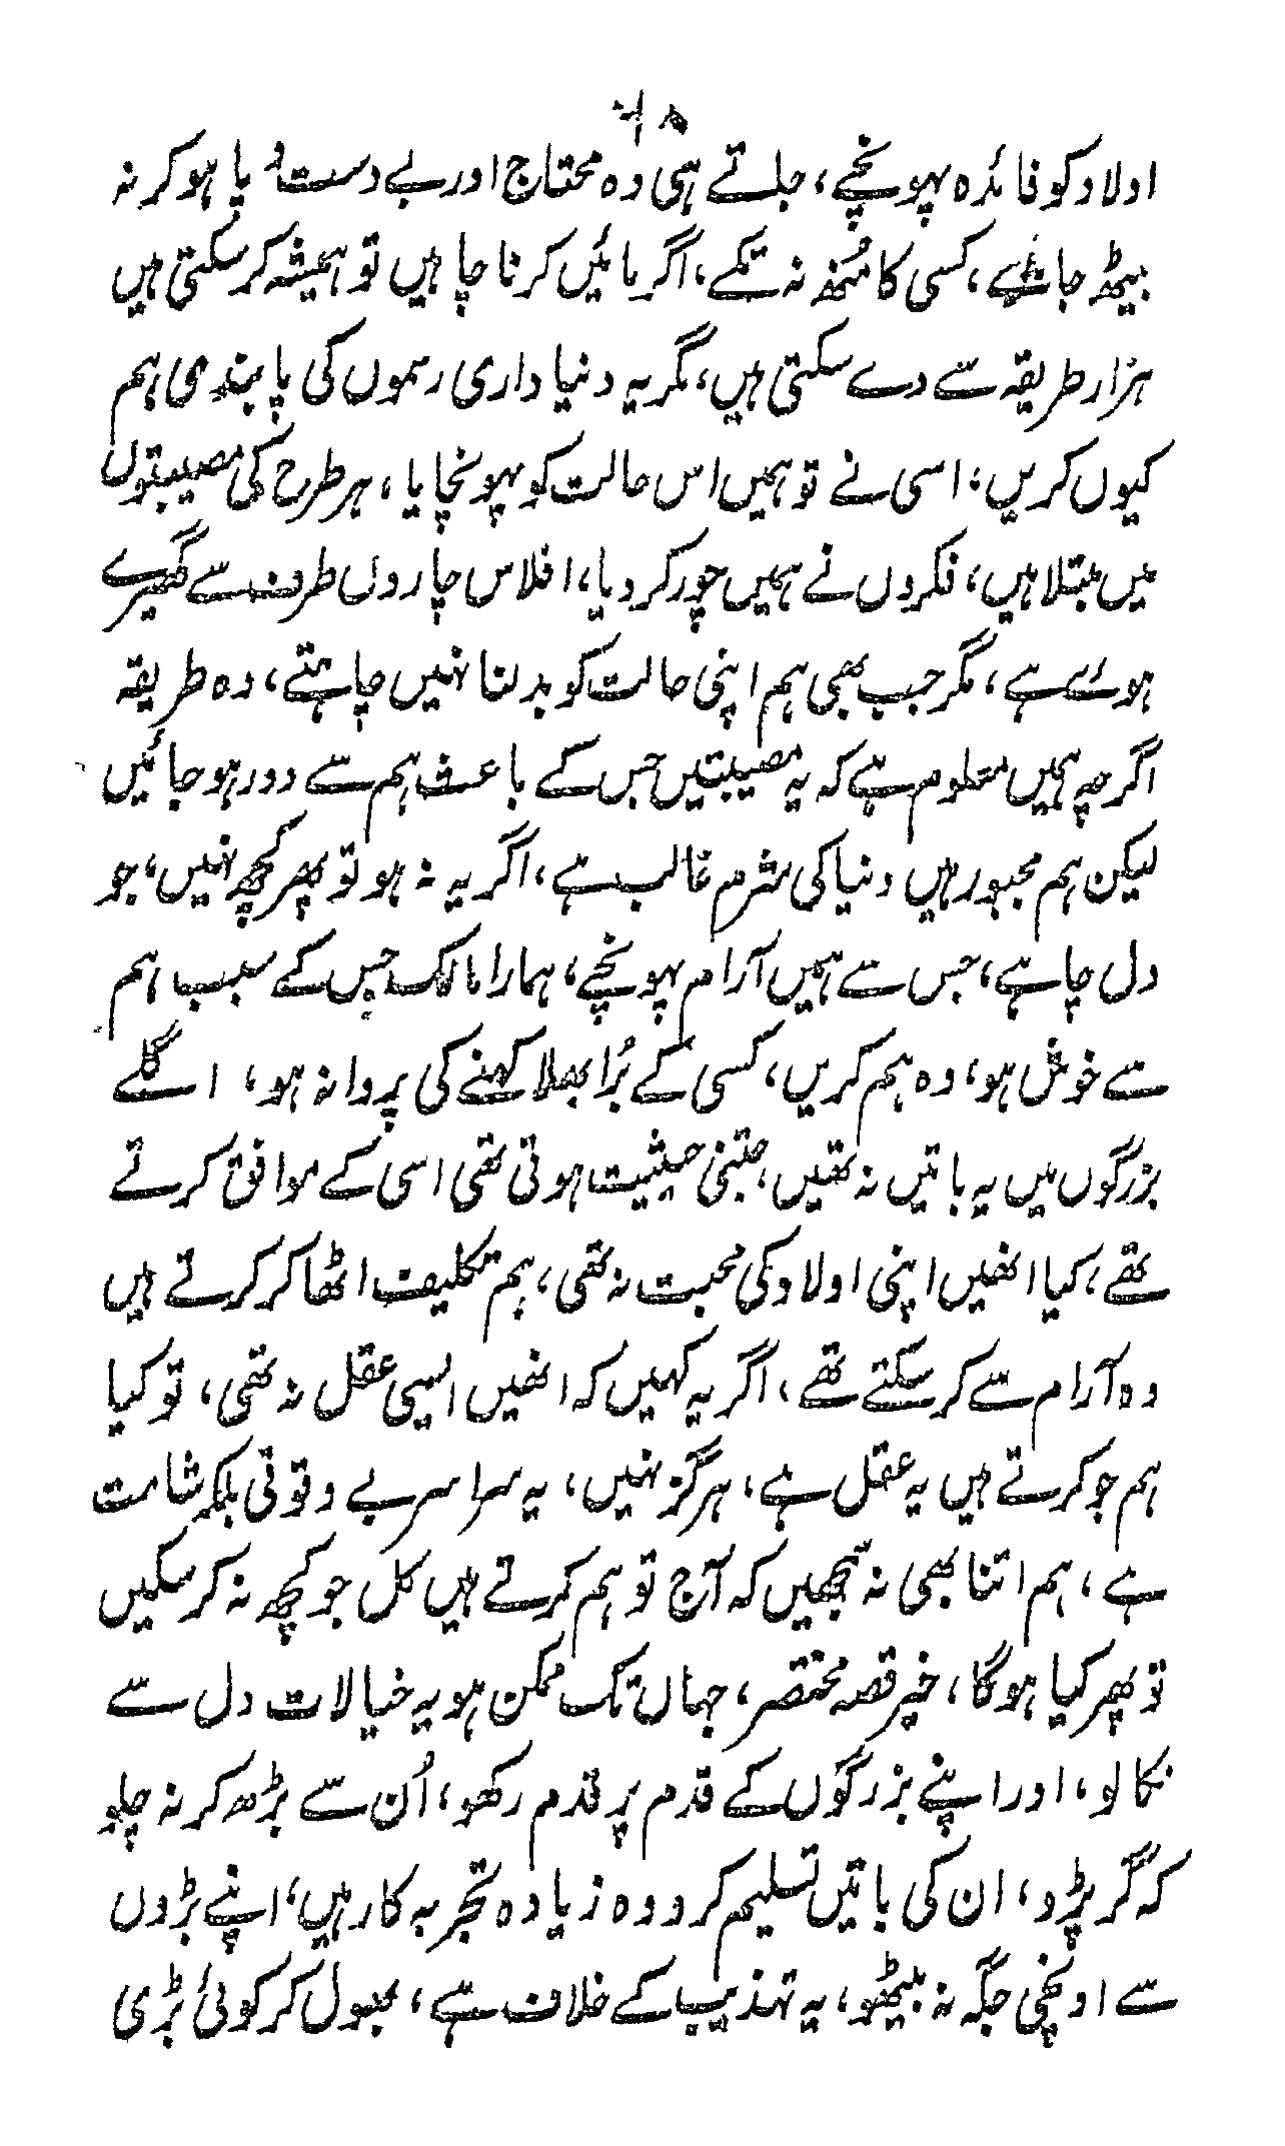 اولاد کو فائدہ پہونچے، جاتے ہی وہ محتاج اور بے دست و پا ہو کر نہ
بیٹھ جائے، کسی کا منھ نہ تکے، اگر مائیں کرنا چاہیں تو ہمیشہ کر سکتی ہیں
ہزار طریقہ سے دے سکتی ہیں، مگر یہ دنیا داری رسموں کی پابندی ہم
کیوں کریں، اسی نے تو ہمیں اس حالت کو پہونچایا، ہر طرح کی مصیبتوں
میں مبتلا ہیں، فکروں نے ہمیں چور کر دیا، افلاس چاروں طرف سے گھیرے
ہوئے ہے، مگر جب بھی ہم اپنی حالت کو بدلنا نہیں چاہتے، وہ طریقہ
اگرچہ ہمیں معلوم ہے کہ یہ مصیبتیں جس کے باعث ہم سے دور ہو جائیں
لیکن ہم مجبور ہیں دنیا کی شرم غالب ہے، اگر یہ نہ ہو تو پھر کچھ نہیں، جو
دل چاہے، جس سے ہمیں آرام پہونچے، ہمارا مالک جس کے سبب ہم
سے خوش ہو، وہ ہم کریں، کسی کے بُرا بھلا کہنے کی پروا نہ ہو، اگلے
بزرگوں میں یہ باتیں نہ تھیں، جتنی حیثیت ہوتی تھی اسی کے موافق کرتے
تھے، کیا انھیں اپنی اولاد کی محبت نہ تھی، ہم تکلیف اٹھا کر کرتے ہیں
وہ آرام سے کر سکتے تھے، اگر یہ کہیں کہ انھیں ایسی عقل نہ تھی، تو کیا
ہم جو کرتے ہیں یہ عقل ہے، ہرگز نہیں، یہ سراسر بے وقوفی بلکہ شامت
ہے، ہم اتنا بھی نہ سمجھیں کہ آج تو ہم کرتے ہیں کل جو کچھ نہ کر سکیں
تو پھر کیا ہوگا، خیر قصہ مختصر، جہاں تک ممکن ہو یہ خیالات دل سے
نکالو، اور اپنے بزرگوں کے قدم پر قدم رکھو، اُن سے بڑھ کر نہ چلو
کہ گر پڑو، ان کی باتیں تسلیم کرو وہ زیادہ تجربہ کار ہیں، اپنے بڑوں
سے اونچی جگہ نہ بیٹھو، یہ تہذیب کے خلاف ہے، بھول کر کوئی بڑی